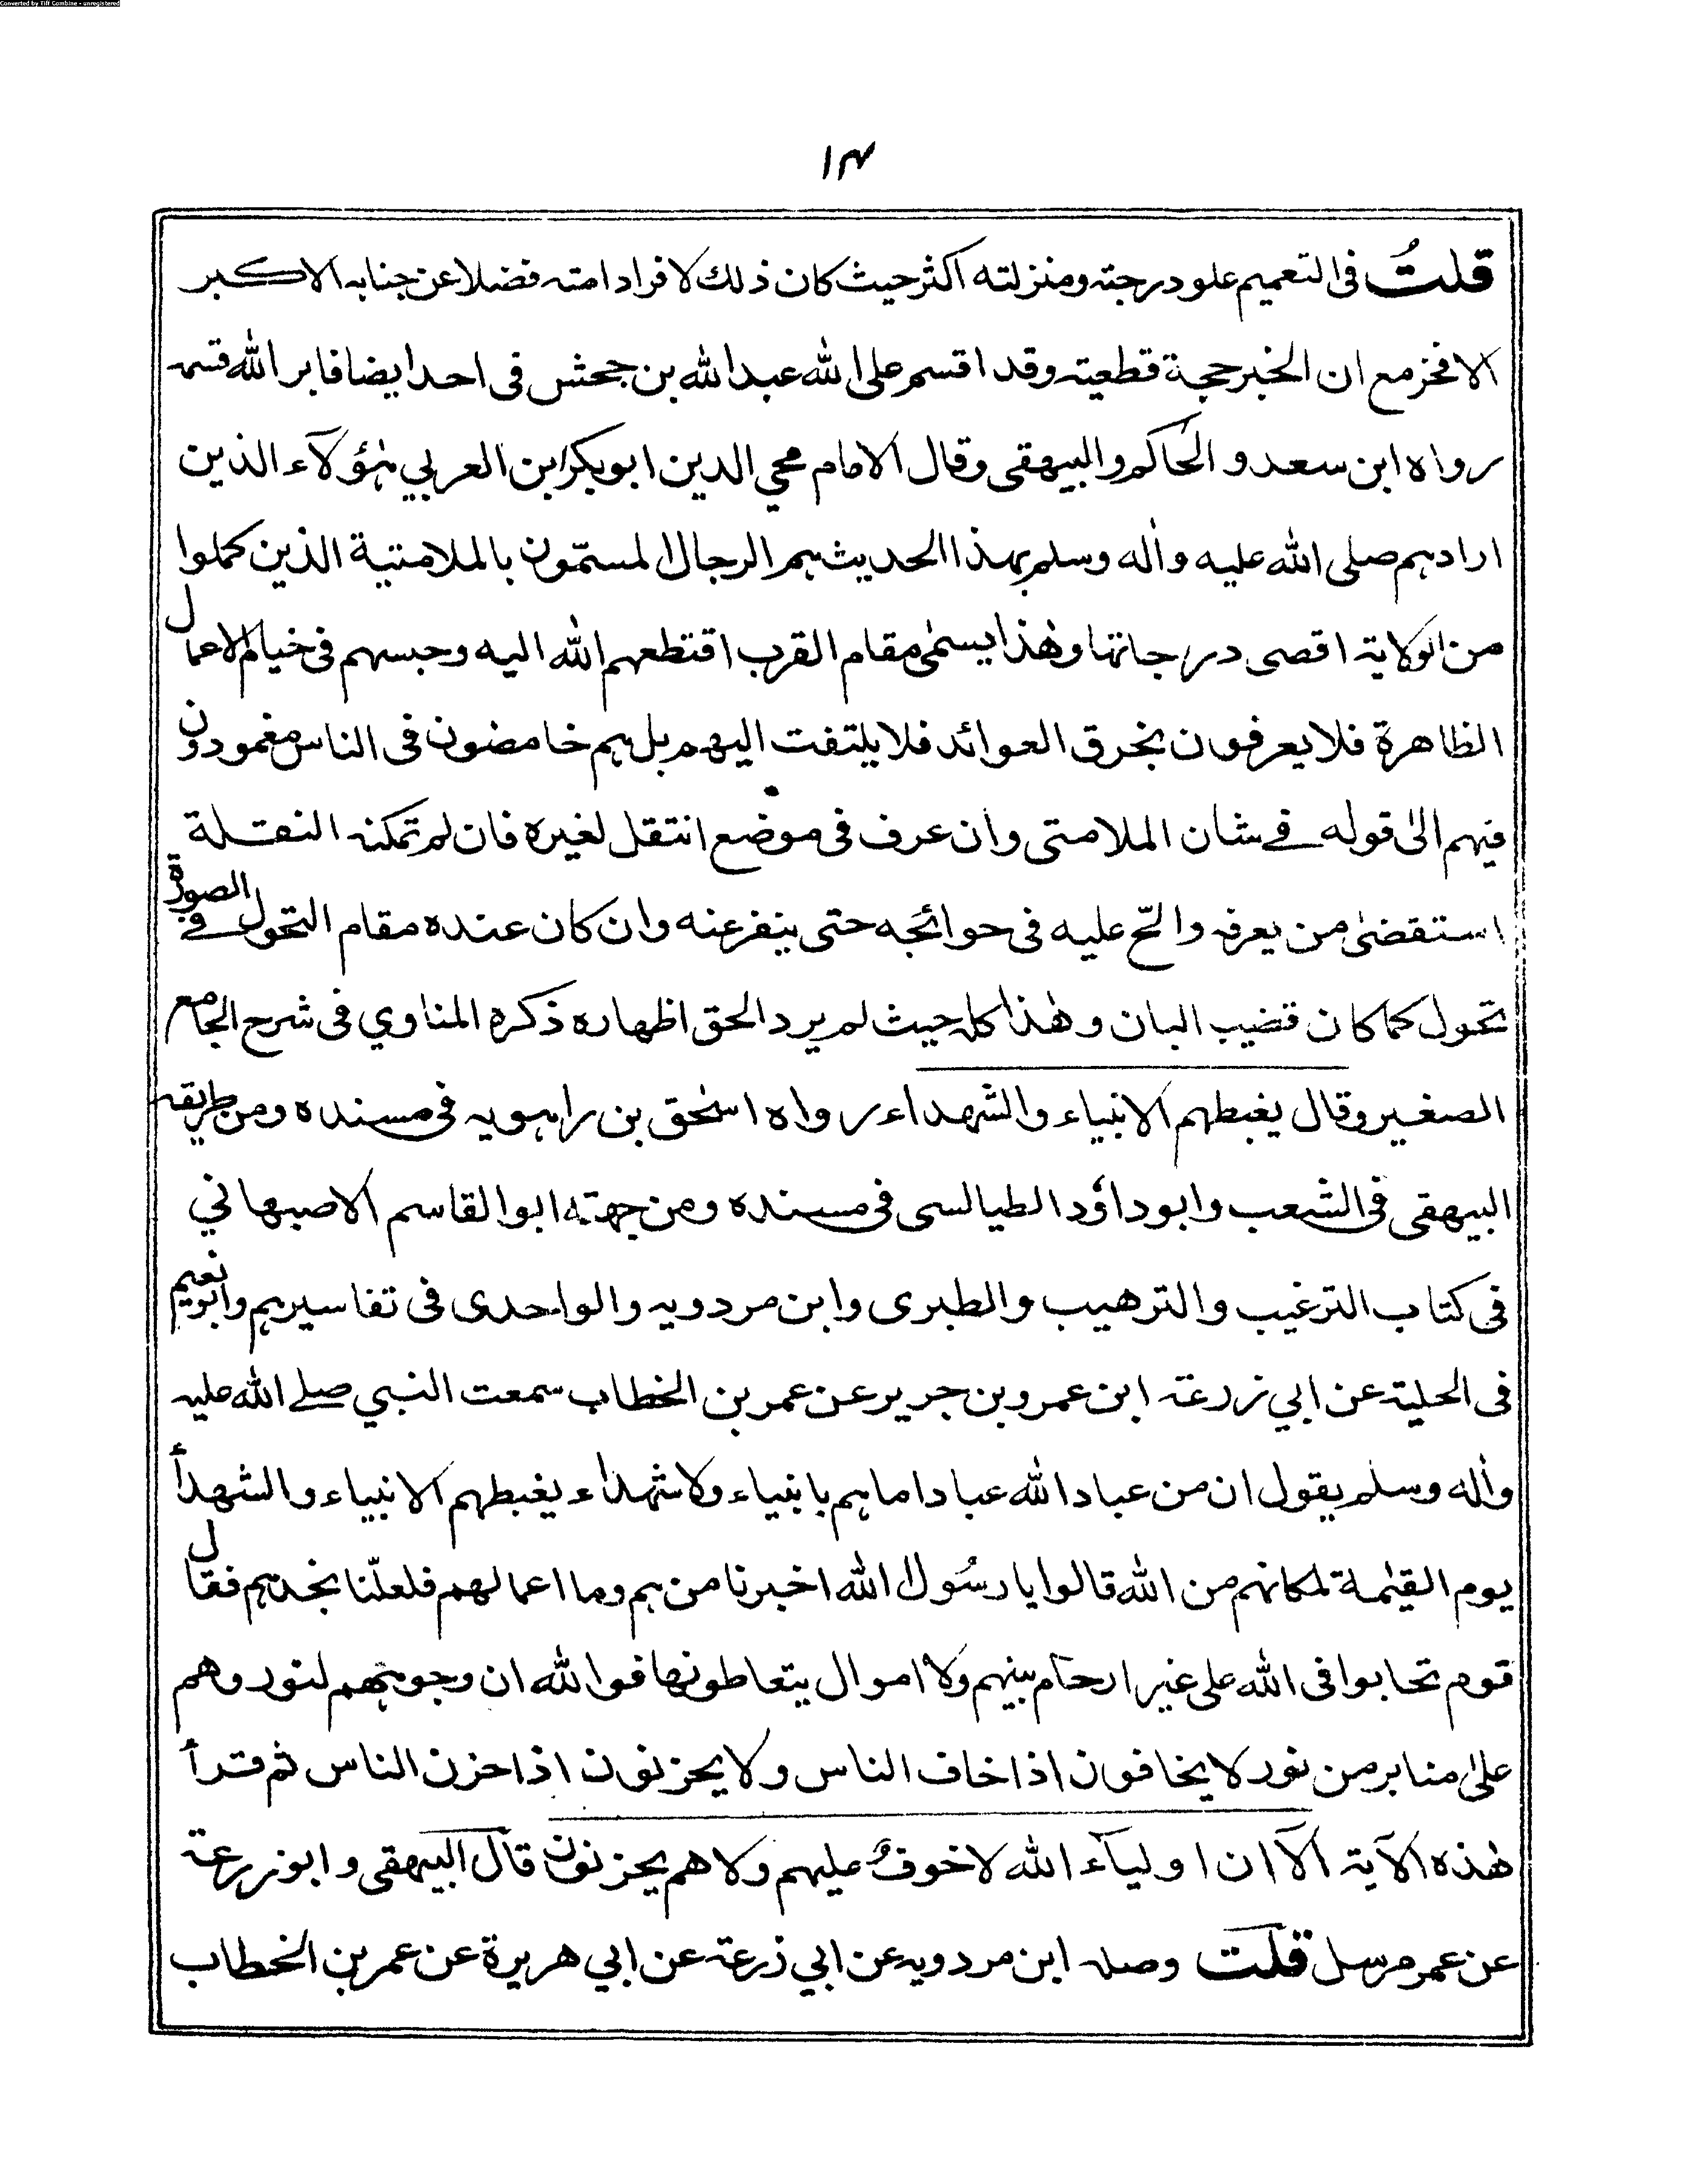 Converted by Tiff Combine - unregistered
۱۴
قلتُ فى التعميم علو درجته ومنزلته اكثر حيث كان ذلك لافراد امته فضلا عن جنابه الاكبر
الافخر مع ان الخبر حجة قطعية وقد اقسم على الله عبدالله بن جحش فى احد ايضا فابر الله قسمه
رواه ابن سعد و الحاكم والبيهقى وقال الامام محي الدين ابوبكر ابن العربي هٰؤلآء الذين
ارادهم صلى الله عليه واٰله وسلم بهذا الحديث هم الرجال المسمّون بالملامتية الذين كملوا
من الولاية اقصى درجاتها وهٰذا يسمّٰى مقام القرب اقتطعهم الله اليه وحبسهم فى خيام الاعمال
الظاهرة فلا يعرفون بخرق العوائد فلا يلتفت اليهم بل هم خامضون فى الناس مغمودون
فيهم الىٰ قوله فى شان الملامتى وان عرف فى موضع انتقل لغيره فان لم تمكنه النقلة
استقضىٰ من يعرفه والحّ عليه فى حوائجه حتى ينفر عنه وان كان عنده مقام التحول فى الصورة
تحول كما كان قضيب البان وهٰذا كله حيث لم يرد الحق اظهاره ذكره المناوي فى شرح الجامع
الصغير وقال يغبطهم الانبياء والشهداء رواه اسحٰق بن راهويه فى مسنده ومن طريقه
البيهقى فى الشعب وابوداؤد الطيالسى فى مسنده ومن جهته ابوالقاسم الاصبهاني
فى كتاب الترغيب والترهيب والطبرى وابن مردويه والواحدى فى تفاسيرهم وابونعيم
فى الحلية عن ابي زرعة ابن عمرو بن جرير عن عمر بن الخطاب سمعت النبي صلى الله عليه
واٰله وسلم يقول ان من عباد الله عبادا ما هم بانبياء ولا شهداء يغبطهم الانبياء والشهدأ
يوم القيٰمة لمكانهم من الله قالوا يا رسُول الله اخبرنا من هم وما اعمالهم فلعلّنا نحبهم فقال
قوم تحابوا فى الله على غير ارحام بينهم ولا اموال يتعاطونها فوالله ان وجوههم لنور وهم
علىٰ منابر من نور لا يخافون اذا خاف الناس ولا يحزنون اذا حزن الناس ثم قرأ
هٰذه الآية الآ ان اولياۤء الله لا خوفٌ عليهم ولا هم يحزنون قال البيهقى و ابوزرعة
عن عمر مرسل قلت وصله ابن مردويه عن ابي زرعة عن ابي هريرة عن عمر بن الخطاب